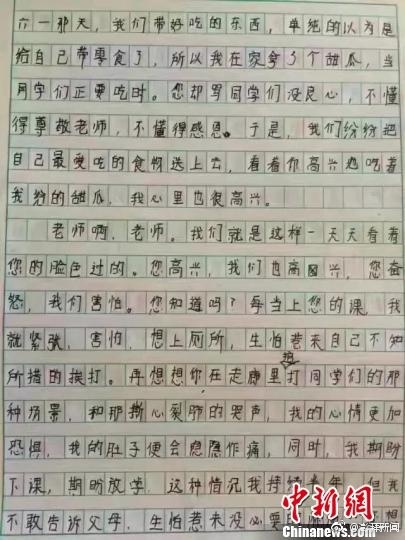 六一那天，我们带好吃的东西，单纯的以为是
给自己带零食了，所以我在家拿了个甜瓜，当
同学们正要吃时。您却骂同学们没良心，不懂
得尊敬老师，不懂得感恩。于是，我们纷纷把
自己最爱吃的食物送上去，看着你高兴地吃着
我给的甜瓜，我心里也很高兴。
老师啊，老师。我们就是这样一天天看着
您的脸色过的。您高兴，我们也高兴，您奋
怒，我们害怕。您知道吗？每当上您的课，我
就紧张，害怕，想上厕所，生怕惹来自己不知
所措的挨打。再想想你在走廊里打同学们的那
种场景，和那撕心裂肺的哭声，我的心情更加
恐惧，我的肚子便会隐隐作痛，同时，我期盼
下课，期盼放学，这种情况我持续半年，但我
不敢告诉父母，生怕惹来没必要
想
中新网
Chinanews.com